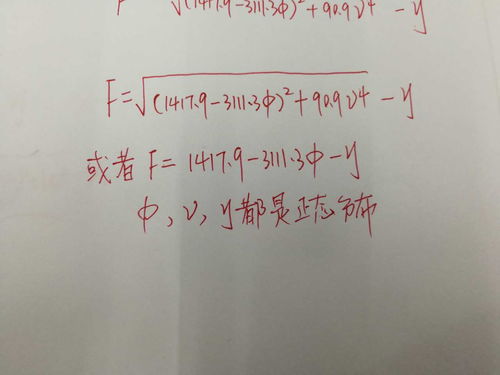 √(1417.9-3111.3φ)²+90.9ν⁴ - y
F=√(1417.9-3111.3φ)²+90.9ν⁴ - y
或者 F= 1417.9-3111.3φ-y
φ, ν, y都是正态分布